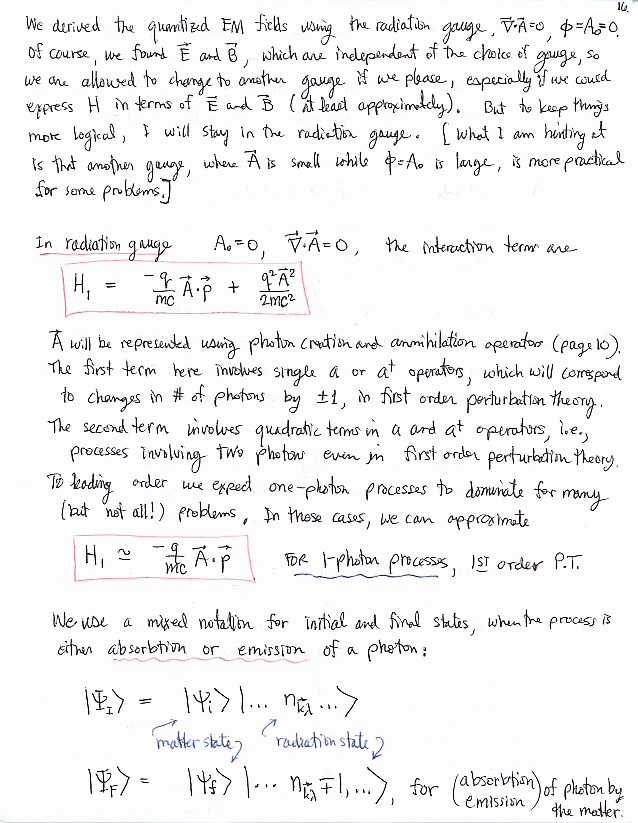 16.
We derived the quantized EM fields using the radiation gauge, ∇⃗·A⃗=0, φ=A₀=0.
Of course, we found E⃗ and B⃗, which are independent of the choice of gauge, so
we are allowed to change to another gauge if we please, especially if we could
express H in terms of E⃗ and B⃗ (at least approximately). But to keep things
more logical, I will stay in the radiation gauge. [What I am hinting at
is that another gauge, where A⃗ is small while φ=A₀ is large, is more practical
for some problems.]
In radiation gauge A₀=0, ∇⃗·A⃗=0, the interaction term are
H₁ = -q/mc A⃗·p⃗ + q²A⃗²/2mc²
A⃗ will be represented using photon creation and annihilation operators (page 10).
The first term here involves single a or a† operators, which will correspond
to changes in # of photons by ±1, in first order perturbation theory.
The second term involves quadratic terms in a and a† operators, i.e.,
processes involving two photons even in first order perturbation theory.
To leading order we expect one-photon processes to dominate for many
(but not all!) problems. In those cases, we can approximate
H₁ ≃ -q/mc A⃗·p⃗ FOR 1-photon processes, 1ST order P.T.
We use a mixed notation for initial and final states, when the process is
either absorbtion or emission of a photon:
|Ψ_I⟩ = |ψ_i⟩ |... n_k⃗λ ...⟩
matter state radiation state
|Ψ_F⟩ = |ψ_f⟩ |... n_k⃗λ ∓1, ...⟩, for (absorbtion emission) of photon by
the matter.